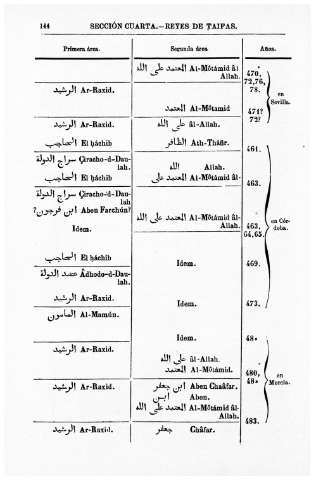 144 SECCIÓN CUARTA.—REYES DE TAIFAS.
Primera área. Segunda área. Años.
المعتمد على الله Al-Môtámid âl-
Allah. 470,
72,76,
الرشيد Ar-Raxid. 78. en
Sevilla.
المعتمد Al-Môtamid 471?
72?
الرشيد Ar-Raxid. على الله âl-Allah.
الحاجب El háchib الظافر Ath-Tháfir. 461.
سراج الدولة Çiracho-d-Dau-
lah. الله Allah.
الحاجب El háchib المعتمد على Al-Môtámid âl- 463.
سراج الدولة Çiracho-d-Dau-
lah
ابن فرجون؟ Aben Farchún?
المعتمد على الله Al-Môtámid âl- en Cór-
Idem. Allah. 463, doba.
64,65.
الحاجب El háchib Idem. 469.
عضد الدولة Âdhodo-d-Dau-
lah.
الرشيد Ar-Raxid. Idem. 473.
المامون Al-Mamún.
Idem. 48*
الرشيد Ar-Raxid. على الله âl-Allah.
المعتمد Al-Môtámid. 480, en
الرشيد Ar-Raxid. ابن جعفر Aben Chaâfar. 48* Murcia.
ابن Aben.
المعتمد على الله Al-Môtámid âl-
Allah. 483.
الرشيد Ar-Raxid. جعفر Châfar.